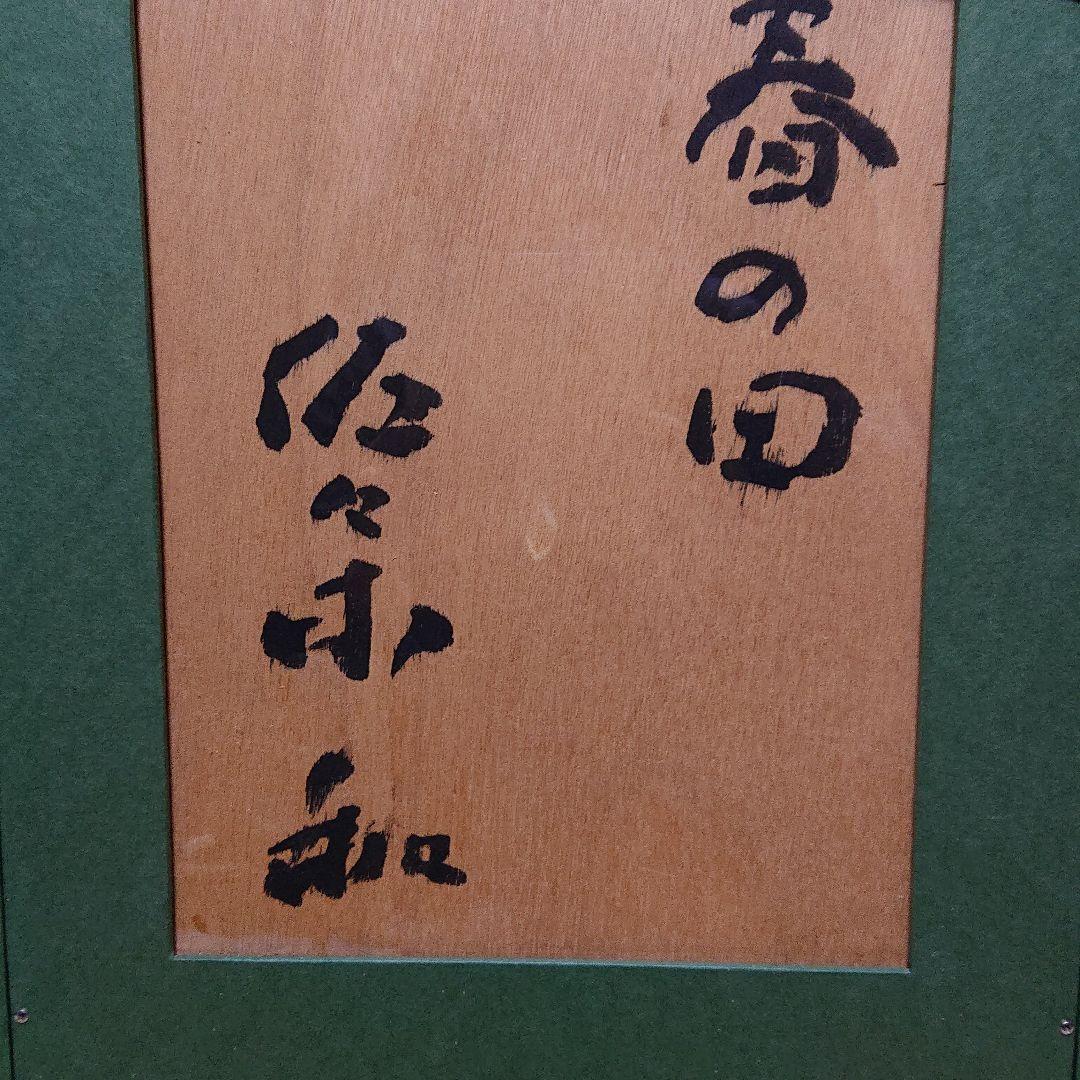 春の田
佐々木 和